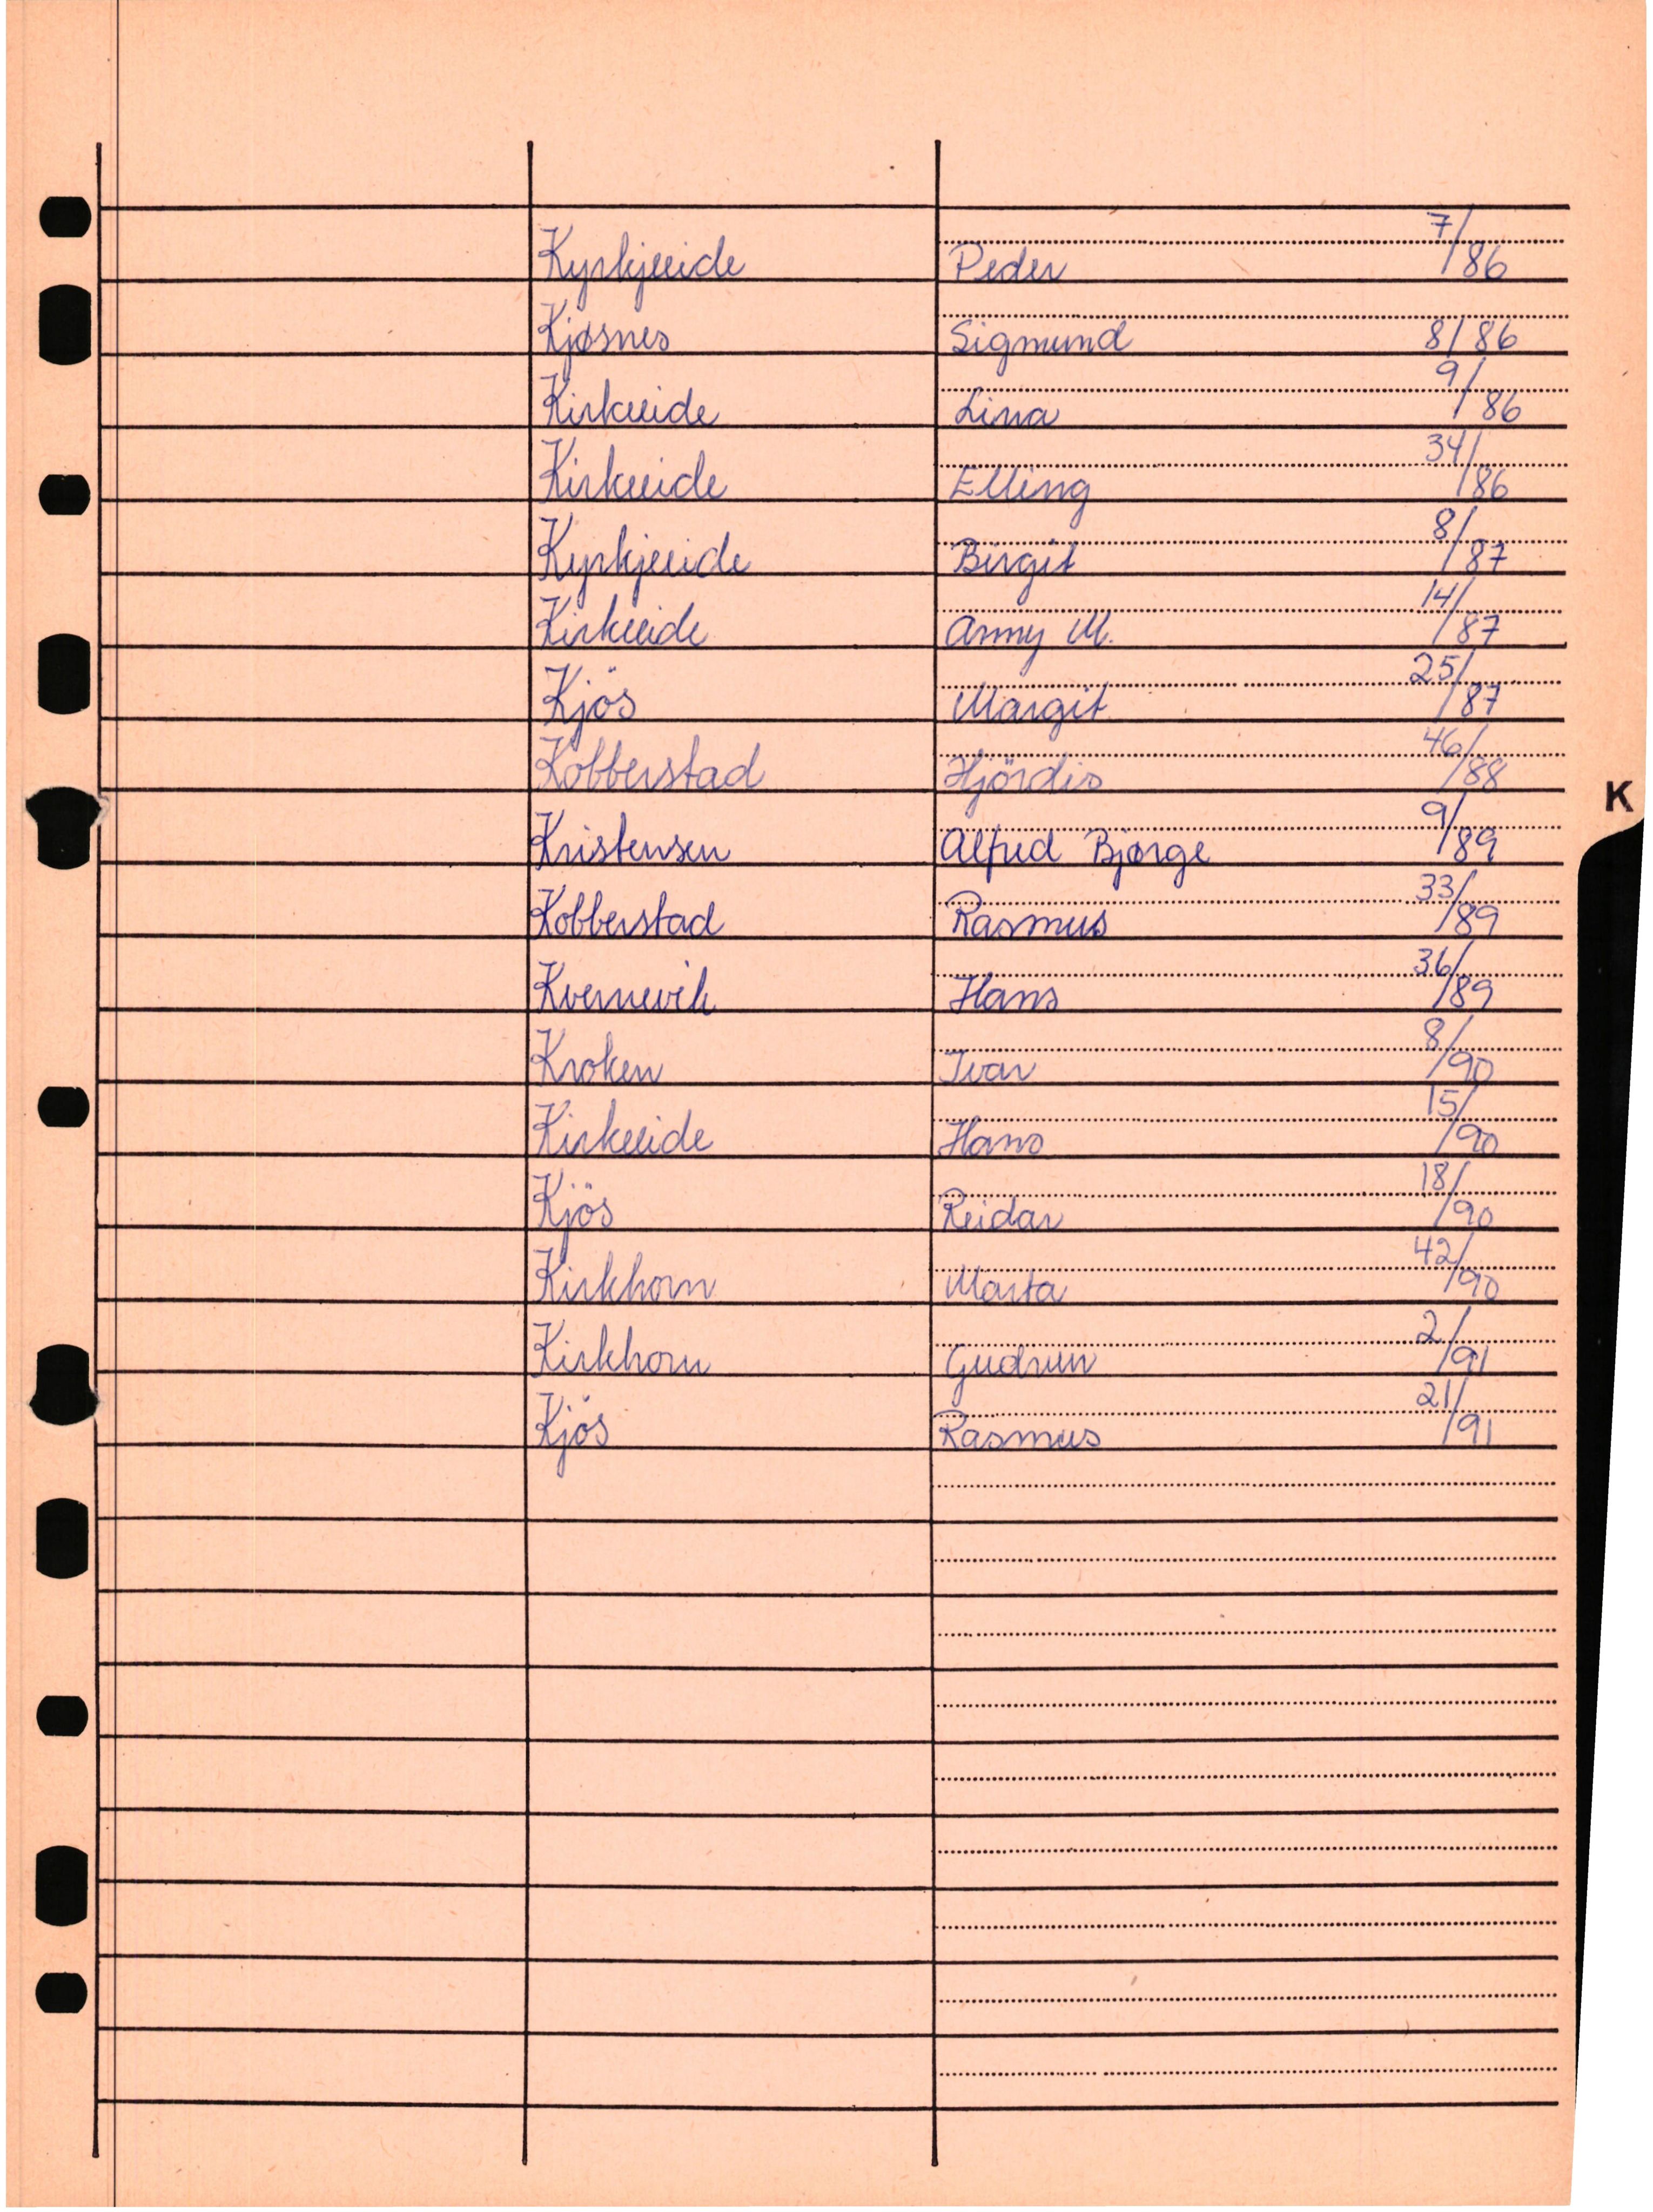 Kyrkjeeide Peder 7/86
Kjøsnes Sigmund 8/86
Kirkeeide Lina 9/86
Kirkeeide Elling 34/86
Kyrkjeeide Birgit 8/87
Kirkeeide Anny M. 14/87
Kjös Margit 25/87
Kobberstad Hjördis 46/88
K
Kristensen Alfred Bjørge 9/89
Kobberstad Rasmus 33/89
Kvernevik Hans 36/89
Kroken Ivar 8/90
Kirkeeide Hans 15/90
Kjös Reidar 18/90
Kirkhorn Marta 42/90
Kirkhorn Gudrun 2/91
Kjös Rasmus 21/91